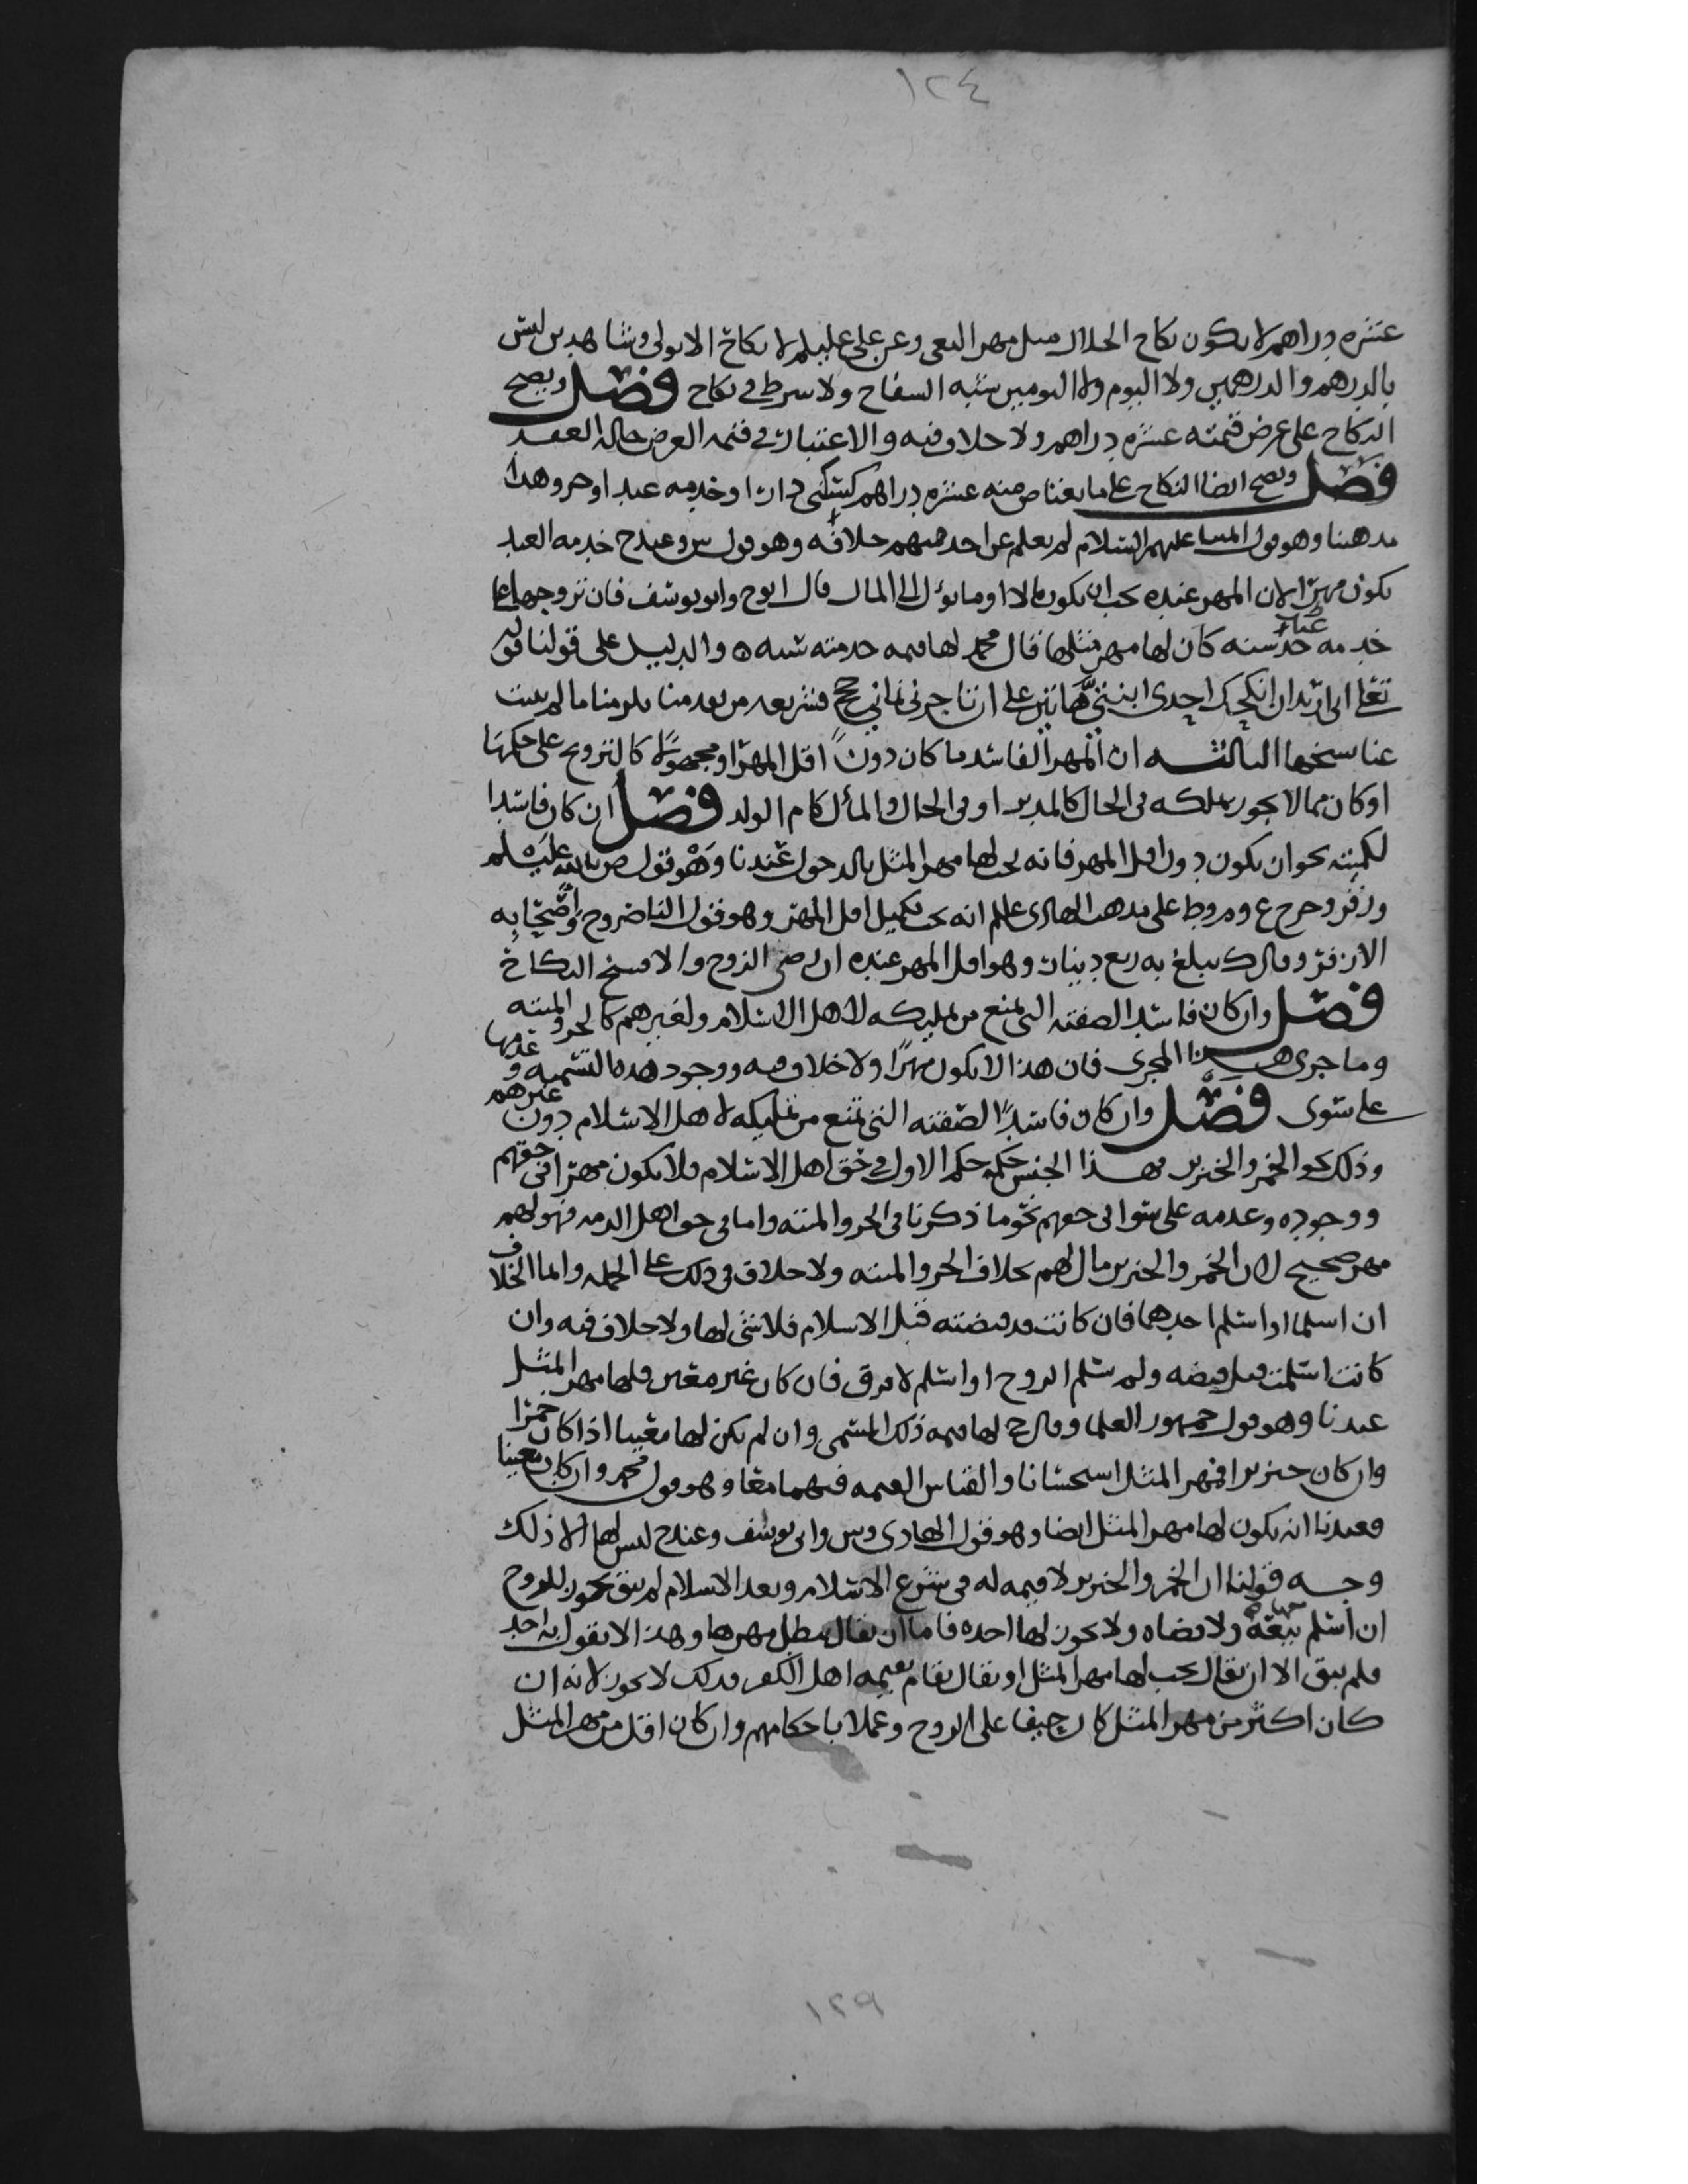 ١٢٤
عشره دراهم لا يكون نكاح الحلال مثل مهر البغي وعن علي عليلم لا نكاح الا بولي وشاهدين ليس
بالدرهم والدرهمين ولا اليوم ولا اليومين شبه السفاح ولا شرط في نكاح فصل ويصح
النكاح على عرض قيمته عشره دراهم ولا خلاف فيه والاعتبار في قيمه العرض حاله العقد
فصل ويصح ايضا النكاح على ما يعتاض منه عشره دراهم كسكنى دار او خدمه عبد او حر وهذا
مذهبنا وهو قول عليهم السلام لم نعلم عن احد منهم خلافه وهو قول س وعند ح خدمه العبد
تكون مهرا لان المهر عنده يجب ان يكون مالا او ما يؤل الى المال قال ابو ح وابو يوسف فان تزوجها على
خدمه حر سنه كان لها مهر مثلها قال محمد لها قيمه خدمته سنه ه والدليل على قولنا قوله
تعلى اني اريد ان انكحك احدى ابنتي هاتين على ان تاجرني ثماني حجج فشريعه من تقدمنا تلزمنا ما لم يثبت
عنا نسخها الثالثه ان المهر الفاسد ما كان دون اقل المهر او مجهولا كالتزويج على حكمها
او كان مما لا يجوز تملكه في الحال كالمدبر او في الحال والمأل كام الولد فصل ان كان فاسدا
لكميته نحو ان يكون دون اقل المهر فانه يجب لها مهر المثل بالدخول عندنا وهو قول ص بالله عليه سلم
وزفر وخرج ع وم وط على مذهب الهادي علىلم انه يجب تكميل اقل المهر وهو قول الناصر وح واصحابه
الا زفر وقال ك يبلغ به ربع دينار وهو اقل المهر عنده ان رضي الزوج والا فسخ النكاح
فصل وان كان فاسدا لصفته التي تمنع من تمليكه لاهل الاسلام ولغيرهم كالحر والميته
وما جرى هذا المجرى فان هذا لا يكون مهرا ولا خلاف فيه ووجود هذه التسميه وعدمها
على سوى فصل وان كان فاسدا لصفته التي تمنع من تمليكه لاهل الاسلام دون غيرهم
وذلك نحو الخمر والخنزير فهذا الجنس حكمه حكم الاول في حق اهل الاسلام فلا يكون مهرا في حقهم
ووجوده وعدمه على سوا في حقهم نحو ما ذكرنا في الحر والميته واما في حق اهل الذمه فهو لهم
مهر صحيح لان الخمر والخنزير مال لهم بخلاف الحر والميته ولا خلاف في ذلك على الجمله وانما الخلاف
ان اسلما او اسلم احدهما فان كانت قد قبضته قبل الاسلام فلا شي لها ولا خلاف فيه وان
كانت اسلمت قبل قبضه ولم يسلم الزوج او اسلم لا فرق فان كان غير معين فلها مهر المثل
عندنا وهو قول جمهور العلما وقال ح لها قيمه ذلك المسمى وان لم يكن لها معينا اذا كان خمرا
وان كان خنزيرا فمهر المثل استحسانا والقياس القيمه فيهما معا وهو قول محمد وان كان معينا
فعندنا انه يكون لها مهر المثل ايضا وهو قول الهادي وس وابي يوسف وعند ح ليس لها الا ذلك
وجه قولنا ان الخمر والخنزير لا قيمه له في شرع الاسلام وبعد الاسلام لم يبق يجوز للزوج
ان اسلم بيعه ولا قضاه ولا يجوز لها اخذه فاما ان يقال يبطل مهرها وهذا لا يقول به احد
فلم يبق الا ان يقال يجب لها مهر المثل او يقال يقام بقيمه اهل الكفر فذلك لا يجوز لانه ان
كان اكثر من مهر المثل كان حيفا على الزوج وعملا باحكامهم وان كان اقل من مهر المثل
١٢٩